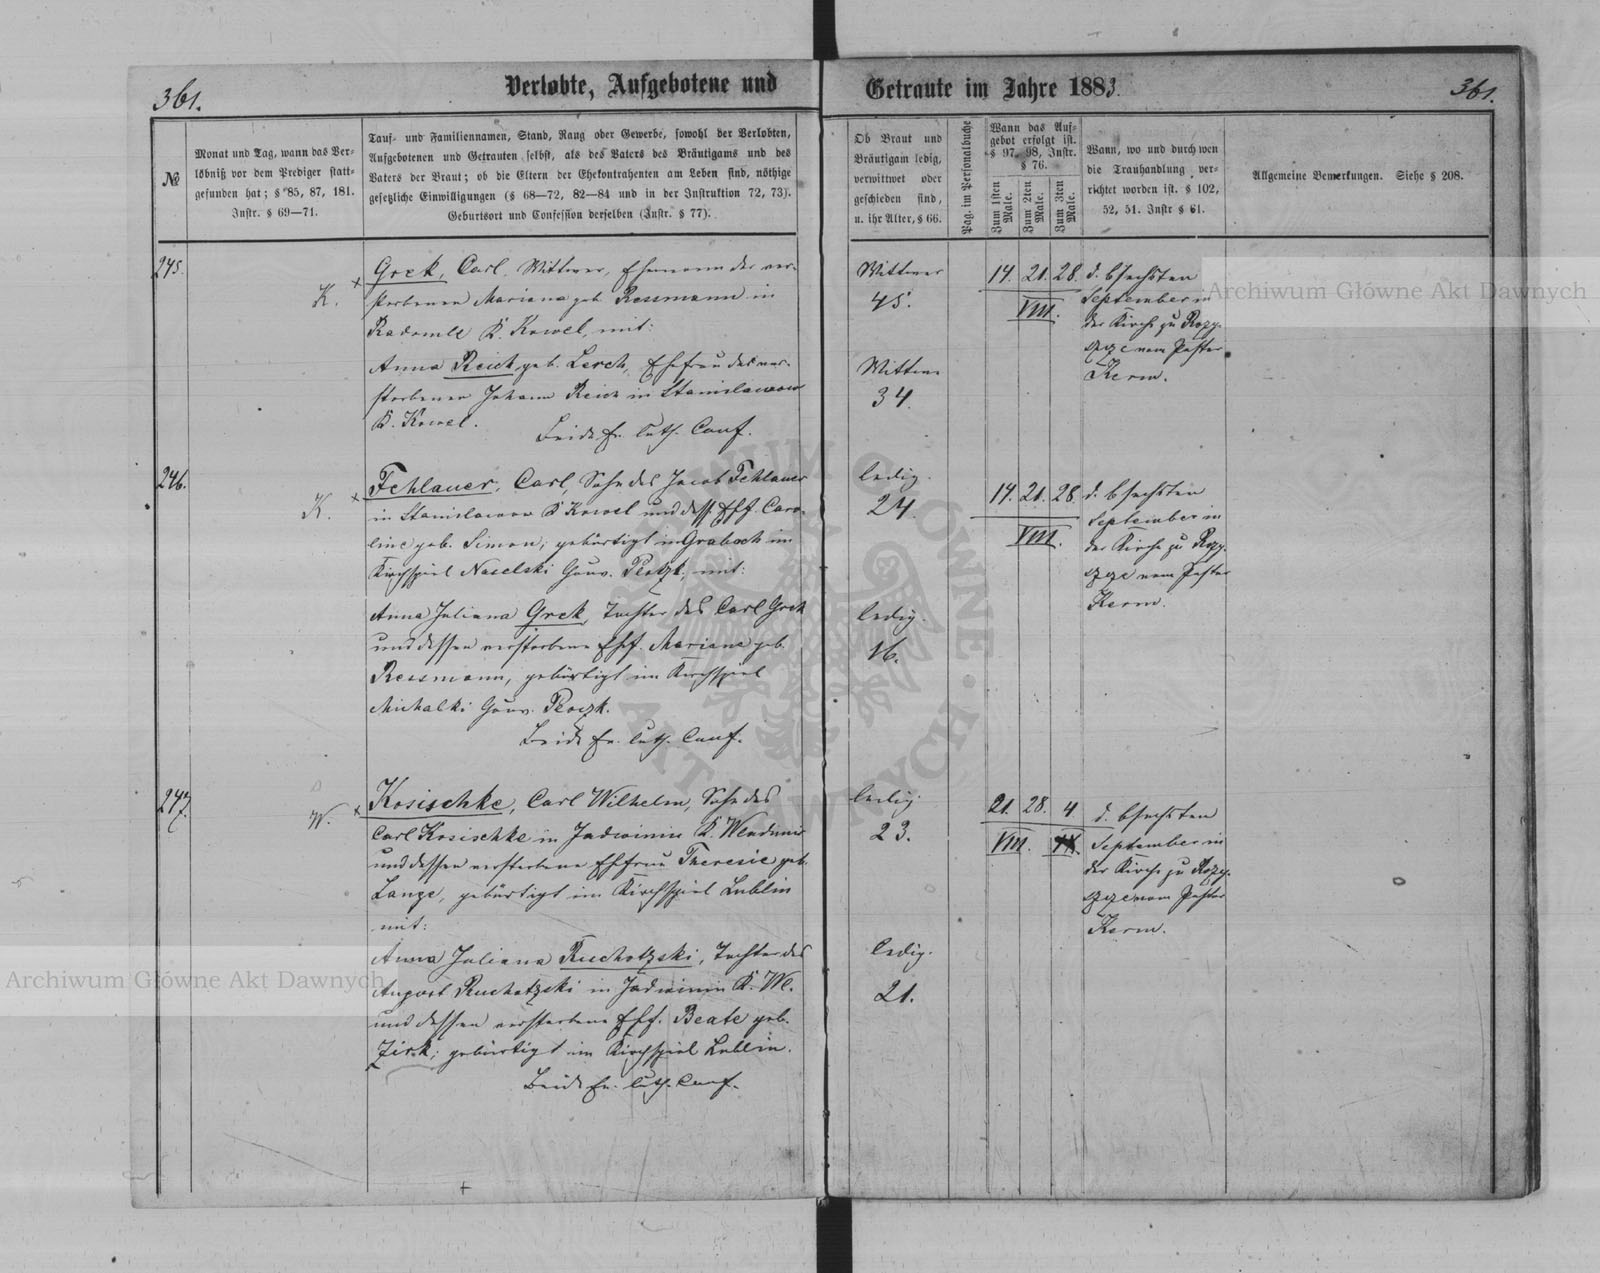 361.
Verlobte, Aufgebotene und
Getraute im Jahre 1883.
361.
№
Monat und Tag, wann das Ver-
löbniß vor dem Prediger statt-
gefunden hat; § 85, 87, 181.
Instr. § 69—71.
Tauf- und Familiennamen, Stand, Rang oder Gewerbe, sowohl der Verlobten,
Aufgebotenen und Getrauten selbst, als des Vaters des Bräutigams und des
Vaters der Braut; ob die Eltern der Ehekontrahenten am Leben sind, nöthige
gesetzliche Einwilligungen (§ 68—72, 82—84 und in der Instruktion 72, 73).
Geburtsort und Confession derselben (Instr. § 77).
Ob Braut und
Bräutigam ledig,
verwittwet oder
geschieden sind,
u. ihr Alter, § 66.
Pag. im Personalbuche
Wann das Auf-
gebot erfolgt ist.
§ 97, 98, Instr.
§ 76.
Zum 1sten
Male.
Zum 2ten
Male.
Zum 3ten
Male.
Wann, wo und durch wen
die Trauhandlung ver-
richtet worden ist. § 102,
52, 51. Instr § 61.
Allgemeine Bemerkungen. Siehe § 208.
245.
K.
x
Grek, Carl, Wittwer, Ehemann der ver-
storbenen Mariana geb. Ressmann in
Radomle K. Kowel, mit:
Anna Reich geb. Lerch, Ehefrau des ver-
storbenen Johann Reich in Stanislawow
K. Kowel.
Beide ev. luth. Conf.
Wittwer
45.
Wittwe
34.
14. 21. 28.
VIII.
d. 6 sechsten
September in
der Kirche zu Rozy-
szcze vom Pastor
Kerm.
246.
K.
x
Fehlauer, Carl, Sohn des Jacob Fehlauer
in Stanislawow K. Kowel und dess. Ehf. Caro-
line geb. Simon; gebürtigt in Graboch im
Kirchspiel Naselski Gouv. Plotzk, mit:
Anna Juliana Grek, Tochter des Carl Grek
und dessen verstorbene Ehf. Mariane geb.
Ressmann, gebürtigt im Kirchspiel
Michalki Gouv. Plozk.
Beide ev. luth. Conf.
ledig.
24.
ledig.
16.
14. 21. 28.
VIII.
d. 6 sechsten
September in
der Kirche zu Rozy-
szcze vom Pastor
Kerm.
247.
W.
x
Kosischke, Carl Wilhelm, Sohn des
Carl Kosischke in Jadwinin K.
und dessen verstorbene Ehefrau Theresie geb.
Lange, gebürtigt im Kirchspiel Lublin
mit:
Anna Juliana Ruchotzski, Tochter des
August Ruchotzski in Jadwinin K. Wl.
und dessen verstorbene Ehf. Beate geb.
Zirk; gebürtigt im Kirchspiel Lublin.
Beide ev. luth. Conf.
ledig.
23.
ledig.
21.
21. 28. 4.
VIII. IX.
d. 6 sechsten
September in
der Kirche zu Rozy-
szcze vom Pastor
Kerm.
Archiwum Główne Akt Dawnych
Archiwum Główne Akt Dawnych
ARCHIWUM GŁÓWNE · AKT DAWNYCH ·